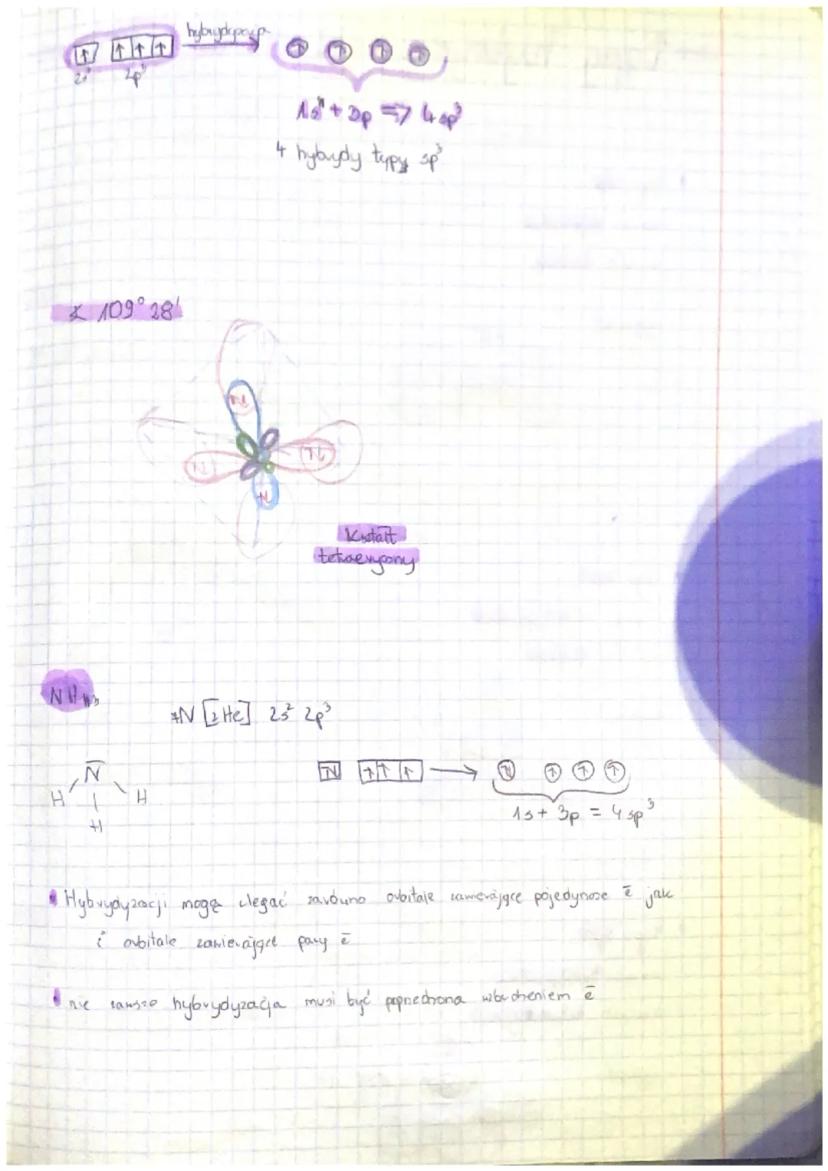 hybrydyzacja
2s¹ 2p³
1s + 3p => 4 sp³
4 hybrydy typy sp³
∡ 109° 28'
Kształt
tetraedryczny
NH₃
₇N [₂He] 2s² 2p³
N
H H
H
1s + 3p = 4 sp³
Hybrydyzacji mogą ulegać zarówno orbitale zawierające pojedyncze ē jak
i orbitale zawierające pary ē
nie zawsze hybrydyzacja musi być poprzedzona wzbudzeniem ē